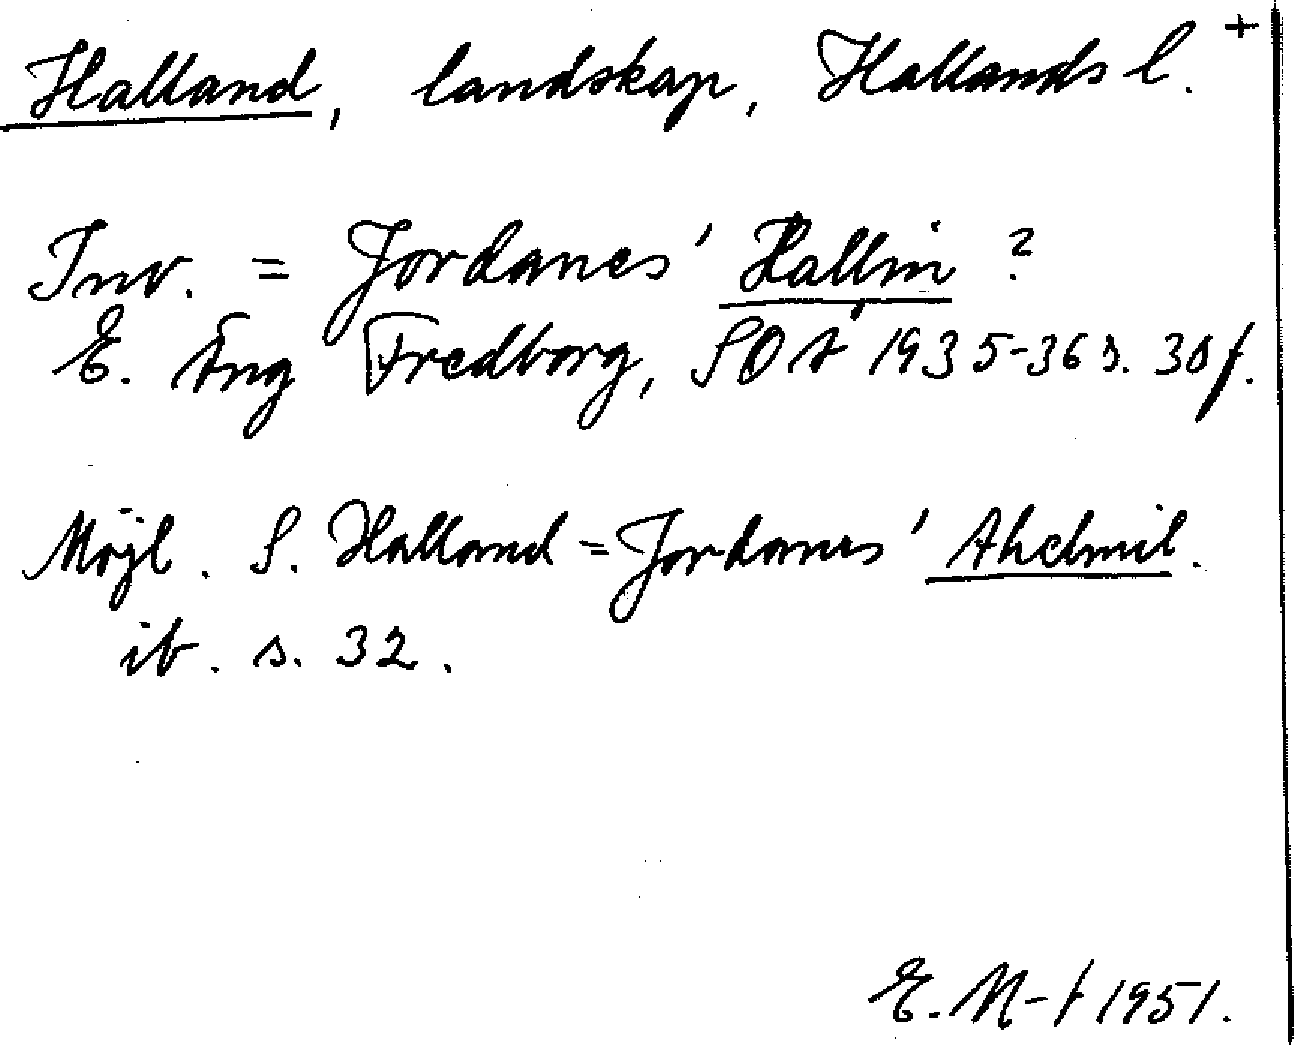 Halland, landskap, Hallands l. +
Inv. = Jordanes' Hallin ?
E. Äng Fredborg, SOÅ 1935-36 s. 30 f.
Möjl. S. Halland = Jordanes' Ahelmil.
ib. s. 32.
E. M-t 1951.